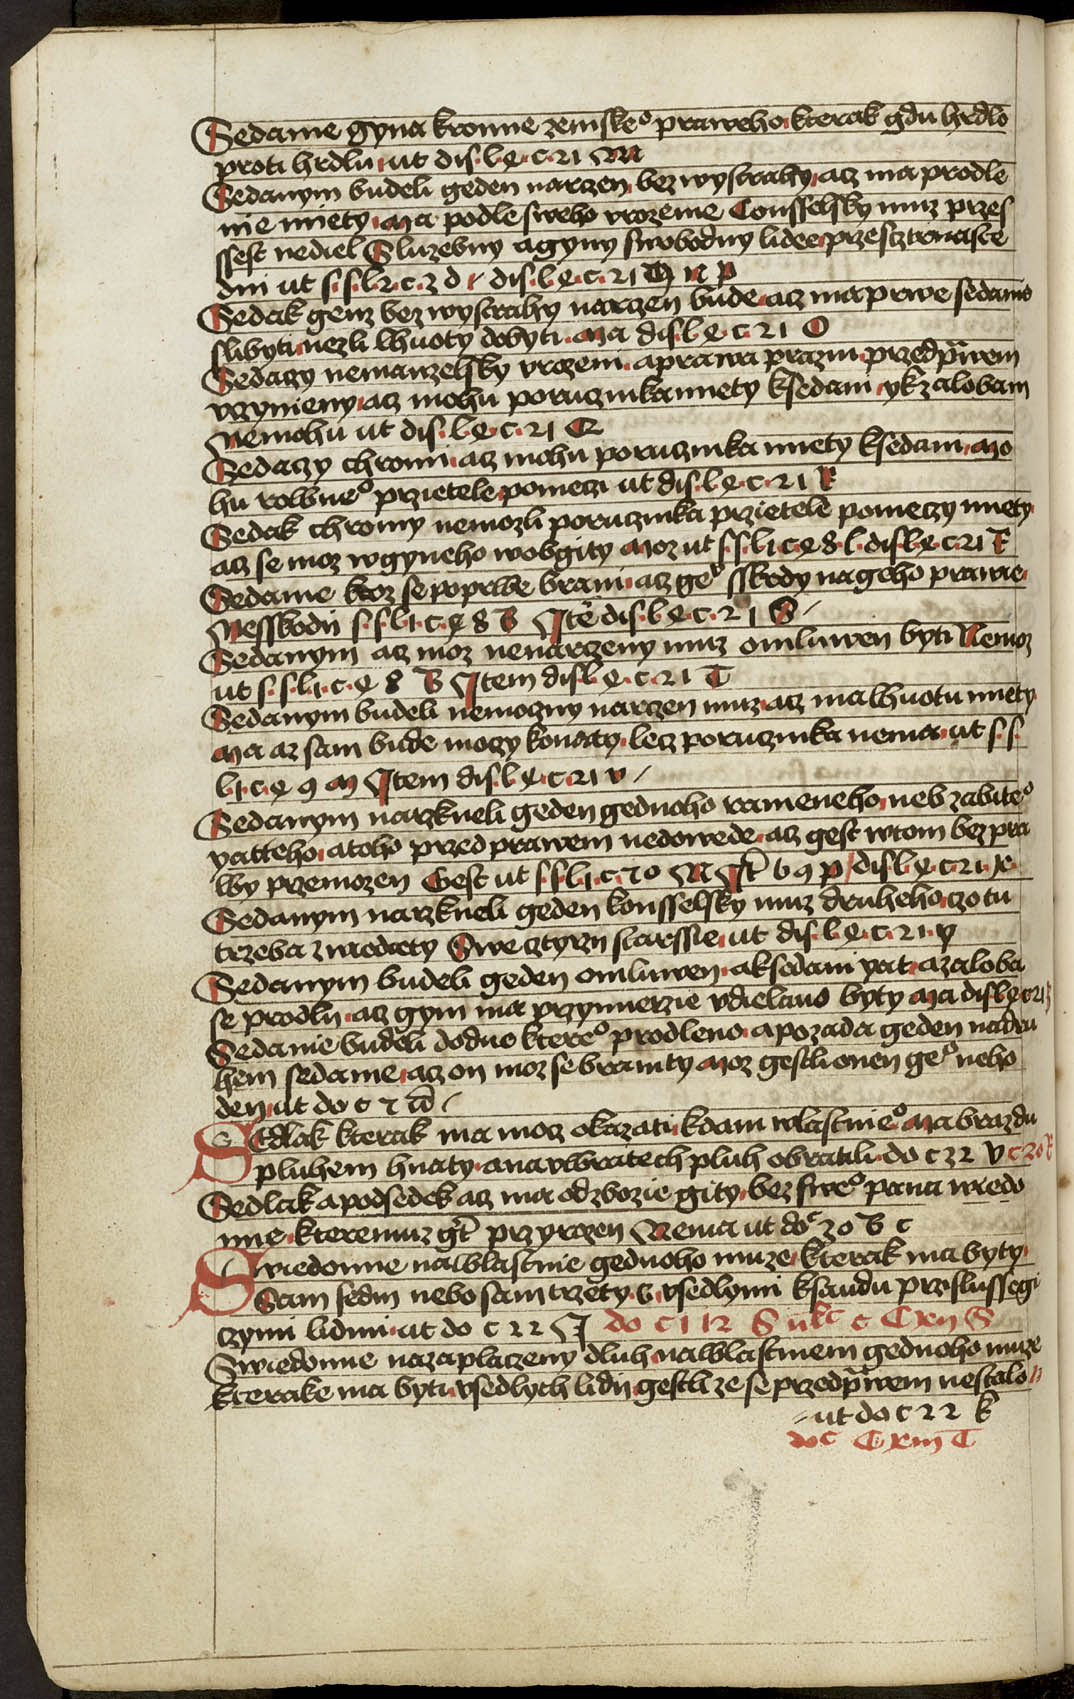 Sedanie gyna kromie zemske° praweho kterak gdu hrdlo
proti hrdlu ut dis. l. 4. c. 21 M
Sedanym budeli geden narczen bez wystrahy acz ma prodle
nie miety Ma podle sweho vrozenie Consselsky muz przes
ssest nediel Sluzebny a gyny swobodny lidee przes cztrnaste
dni ut s. s. l. 2. c. 3 d / dis. l. 4. c. 21 N p
Sedak genz bez wystrahy narczen bude acz ma prwe sedanie
slibyti nezli lhuoty dobyti Ma dis. l. 4. c. 21 O
Sedaczy nemanzelsky vrozeni a prawa prazni przed prawem
vczynieny acz mohu poruczinka miety k sedani yk zalobam
Nemohu ut dis. l. 4. c. 21 Q
Sedaczy chromi acz mohu poruczinka miety k sedani Mo
hu rowne° przietele pomeczi ut dis. l. 4. c. 21 R
Sedak chromy nemozli poruczinka przietele pomeczy miety
acz se moz w gyneho wobgity Moz ut s. s. l. 1. c. 4 8 l. dis. l. 4. c. 21 R
Sedanie ktoz se poprwe brani acz ge° sskody na geho prawie
Nesskodij s. s. l. 1. c. 4 8 B Jtē dis. l. 4. c. 21 S
Sedanym acz moz nenarczeny muz omluwen byti Nemoz
ut s. s. l. 1. c. 4 8 B Jtem dis. l. 4. c. 21 T
Sedanym budeli nemoczny narczen muz acz ma lhuotu miety
Ma az sam bude moczy konaty lecz poruczinka nema ut s. s.
l. 1. c. 4 9 M Jtem dis. l. 4. c. 21 v
Sedanym narzkneli geden gednoho rameneho neb zabite°
yatteho a toho przed prawem nedowede acz gest w tom bez pra
wy przemozen Gest ut s. s. l. 1. c. 70 M Jt b 9 p / dis. l. 4. c. 21 x
Sedanym narzkneli geden konsselsky muz druheho czo tu
trzeba zwiediety Swe cztyrzi starssie ut dis. l. 4. c. 21 y
Sedanym budeli geden omluwen a k sedani yat a zaloba
se prodli acz gym ma przymierzie vdielano byty Ma dis. l. 4. c. 21 z
Sedanie budeli do dne ktere° prodleno a pozada geden na dru
hem sedanie acz on moz se braniti Moz gestli onen ge° neho
den ut do c 7 w
Sedlak kterak ma mocz okazati kdam wlastnie° Ma brazdu
pluhem hnaty a na vwratech pluh obratili do c 32 V c 20 R
Sedlak a podsedek acz ma od zbozie gity bez swe° pana wiedo
mie kteremuz gt przyrozen Nema ut do c 30 B c
Swiedomie na wlastnie gednoho muze kterak ma byty
Sam sedm nebo sam trzety s vsedlymi k saudu przislussegi
czymi lidmi ut do c 22 J do c 112 S
Swiedomie na zaplaczeny dluh na wlastniem gednoho muze
kterake ma byti vsedlych lidij gestli ze se przed prawem nestalo
ut do c 22 k
do c C xiij T